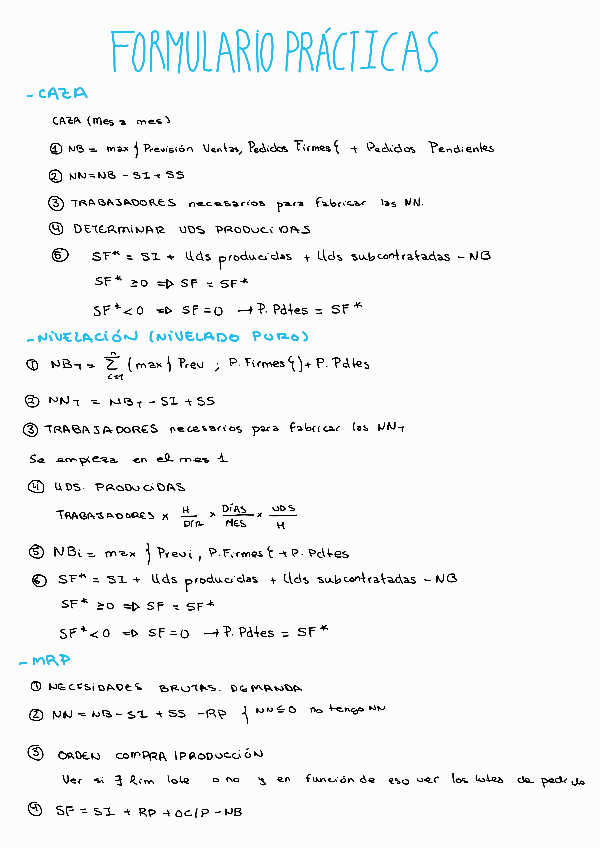 FORMULARIO PRÁCTICAS
- CAZA
CAZA (Mes a mes)
① NB = max { Previsión Ventas, Pedidos Firmes } + Pedidos Pendientes
② NN = NB - SI + SS
③ TRABAJADORES necesarios para fabricar las NN.
④ DETERMINAR UDS PRODUCIDAS
⑤ SF* = SI + Uds producidas + Uds subcontratadas - NB
SF* ≥0 => SF = SF*
SF* <0 => SF = 0 → P. Pdtes = SF*
- NIVELACIÓN (NIVELADO PURO)
① NBT = Σ (max { Prev ; P. Firmes }) + P. Pdtes
② NNT = NBT - SI + SS
③ TRABAJADORES necesarios para fabricar las NNT
Se empieza en el mes 1
④ UDS. PRODUCIDAS
TRABAJADORES x H/DÍA x DÍAS/MES x UDS/H
⑤ NBi = max { Previ, P. Firmes } + P. Pdtes
⑥ SF* = SI + Uds producidas + Uds subcontratadas - NB
SF* ≥0 => SF = SF*
SF* <0 => SF = 0 → P. Pdtes = SF*
- MRP
① NECESIDADES BRUTAS. DEMANDA
② NN = NB - SI + SS - RP { NN ≤ 0 no tengo NN
③ ORDEN COMPRA / PRODUCCIÓN
Ver si ∃ lim lote o no y en función de eso ver los lotes de pedido
④ SF = SI + RP + OC/P - NB